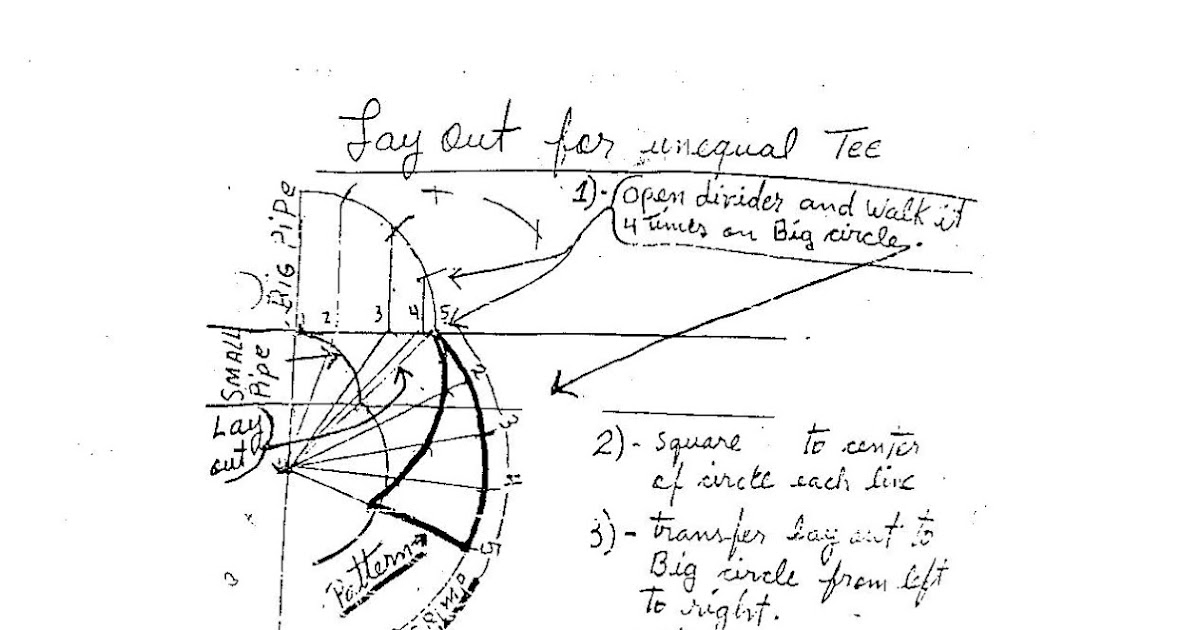 Lay out for unequal Tee
1)- open divider and walk it
4 times on Big circle.
BIG PIPE
2 3 4 5
SMALL
Pipe
2
3
Lay
out
4
5
Pattern
2)- square to center
of circle each line
3)- transfer lay out to
Big circle from left
to right.